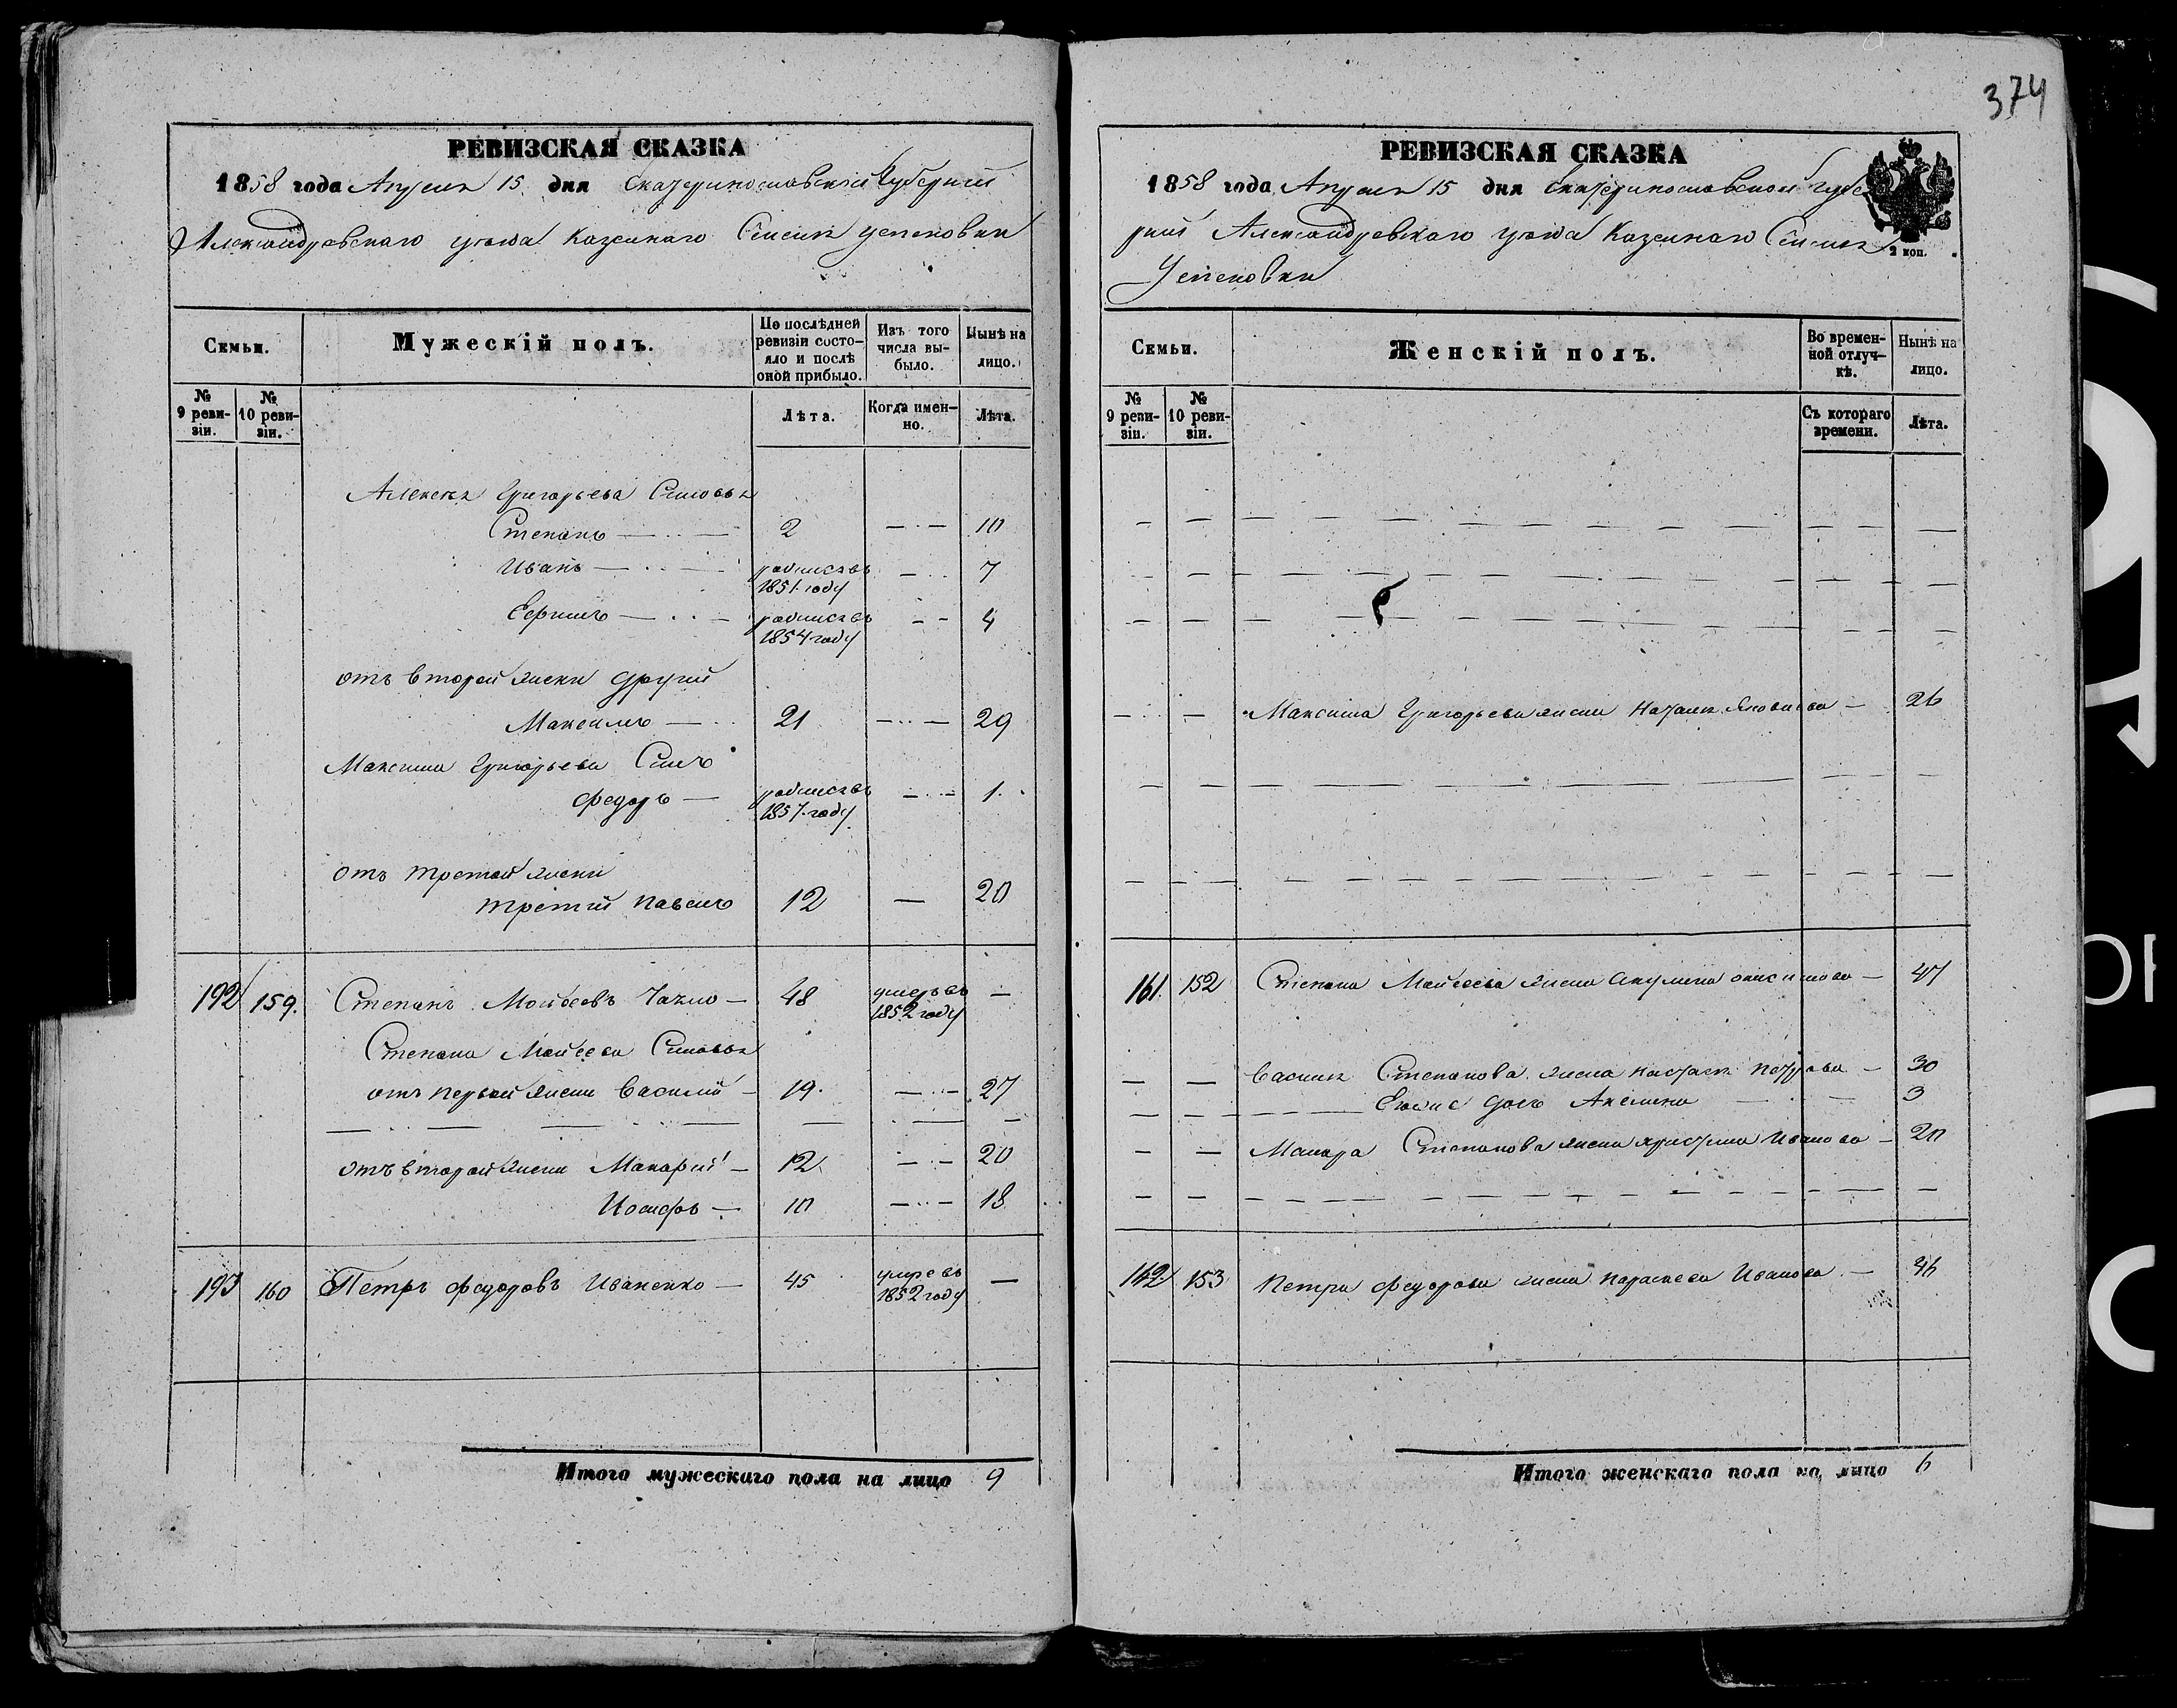 374
РЕВИЗСКАЯ СКАЗКА
1858 года Апреля 15 дня Екатеринославской Губернии
Александровского уезда Казенного Селения Успеновки
Семьи.
Мужескій полъ.
По послѣдней ревизіи состояло и послѣ оной прибыло.
Изъ того числа выбыло.
Нынѣ на лицо.
№ 9 ревизіи.
№ 10 ревизіи.
Лѣта.
Когда именно.
Лѣта.
Алексея Григорьева Сыновья
Степанъ — 2 — 10
Иванъ — родился въ 1851 году — 7
родился въ 1854 году — 4
отъ второй жены другий
Максимъ — 21 — 29
Максима Григорьева Сынъ
Федоръ — родился въ 1857 году — 1
отъ третей жены
третий Павелъ 12 — 20
192 159. Степанъ Мойсеевъ — 48 умеръ въ 1852 году —
Степана Мойсеева Сыновья
отъ первой жены Василий — 19 — 27
отъ второй жены Макарий — 12 — 20
Иосифъ — 10 — 18
193 160 Петръ Федоровъ Иваненко — 45 умре въ 1852 году —
Итого мужескаго пола на лицо 9
РЕВИЗСКАЯ СКАЗКА
1858 года Апреля 15 дня Екатеринославской Губе
рнии Александровского уезда Казенного Селения
Успеновки
2 коп.
Семьи.
Женскій полъ.
Во временной отлучкѣ.
Нынѣ на лицо.
№ 9 ревизіи.
№ 10 ревизіи.
Съ котораго времени.
Лѣта.
Максима Григорьева жена Наталя Яковлева — 26
161. 152 Степана Мойсеева жена Акулина — 47
Василя Степанова жена Настася Петрова — 30
Егоже дочь Акелина — 3
Макара Степанова жена Христина Иванова — 20
162. 153 Петра Федорова жена Параскева Иванова — 46
Итого женскаго пола на лицо 6